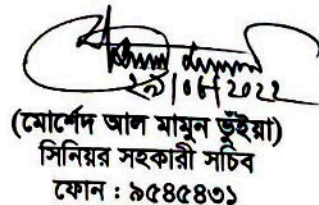 ২৯/০৬/2022
(মোর্শেদ আল মামুন ভূঁইয়া)
সিনিয়র সহকারী সচিব
ফোন : ৯৫৪৫৪৩১